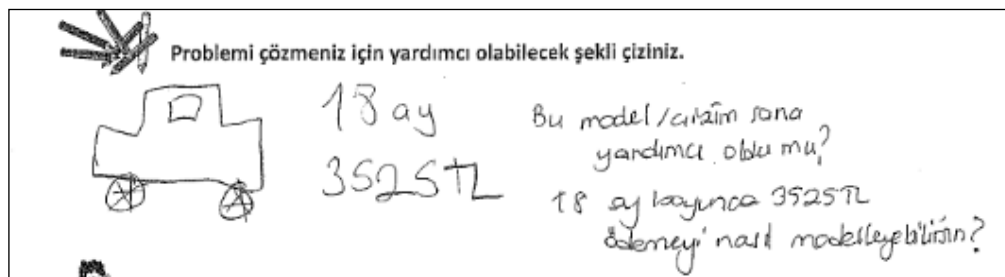 Problemi çözmeniz için yardımcı olabilecek şekli çiziniz.
18 ay
3525 TL
Bu model/çizim sana
yardımcı oldu mu?
18 ay boyunca 3525 TL
ödemeyi nasıl modelleyebilirsin?